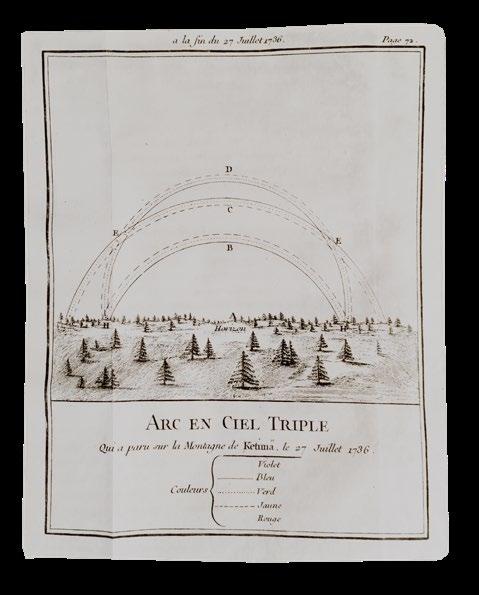 a la fin du 27 Juillet 1736.
Page 72.
D
E
C
E
B
H
A
Horizon
ARC EN CIEL TRIPLE
Qui a paru sur la Montagne de Ketima, le 27 Juillet 1736.
Couleurs
Violet
Bleu
Verd
Jaune
Rouge